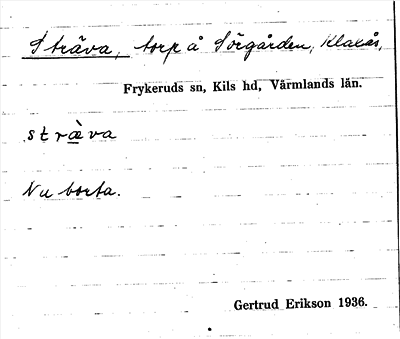 Sträva, torp å Sörgården, Klaxås,
Frykeruds sn, Kils hd, Värmlands län.
stræ̀va
Nu borta.
Gertrud Erikson 1936.